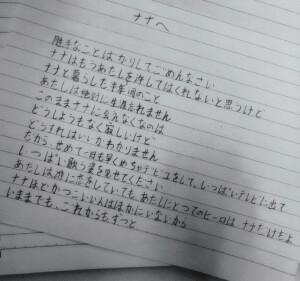 ナナへ
勝手なことばかりしてごめんなさい
ナナはもうあたしを許してはくれないと思うけど
ナナと暮らした半年間のこと
あたしは絶対に生涯忘れません
このままナナに会えなくなるのは
どうしようもなく寂しいけど
どうすればいいかわかりません
だから、せめて一日も早くめちゃデビューをして、いっぱいテレビに出て
いっぱい歌う姿を見せてください
あたしは誰に恋をしていても、あたしにとってのヒーローはナナだけだよ
ナナほどかっこいい人はほかにいないから
いままでも、これからもずっと